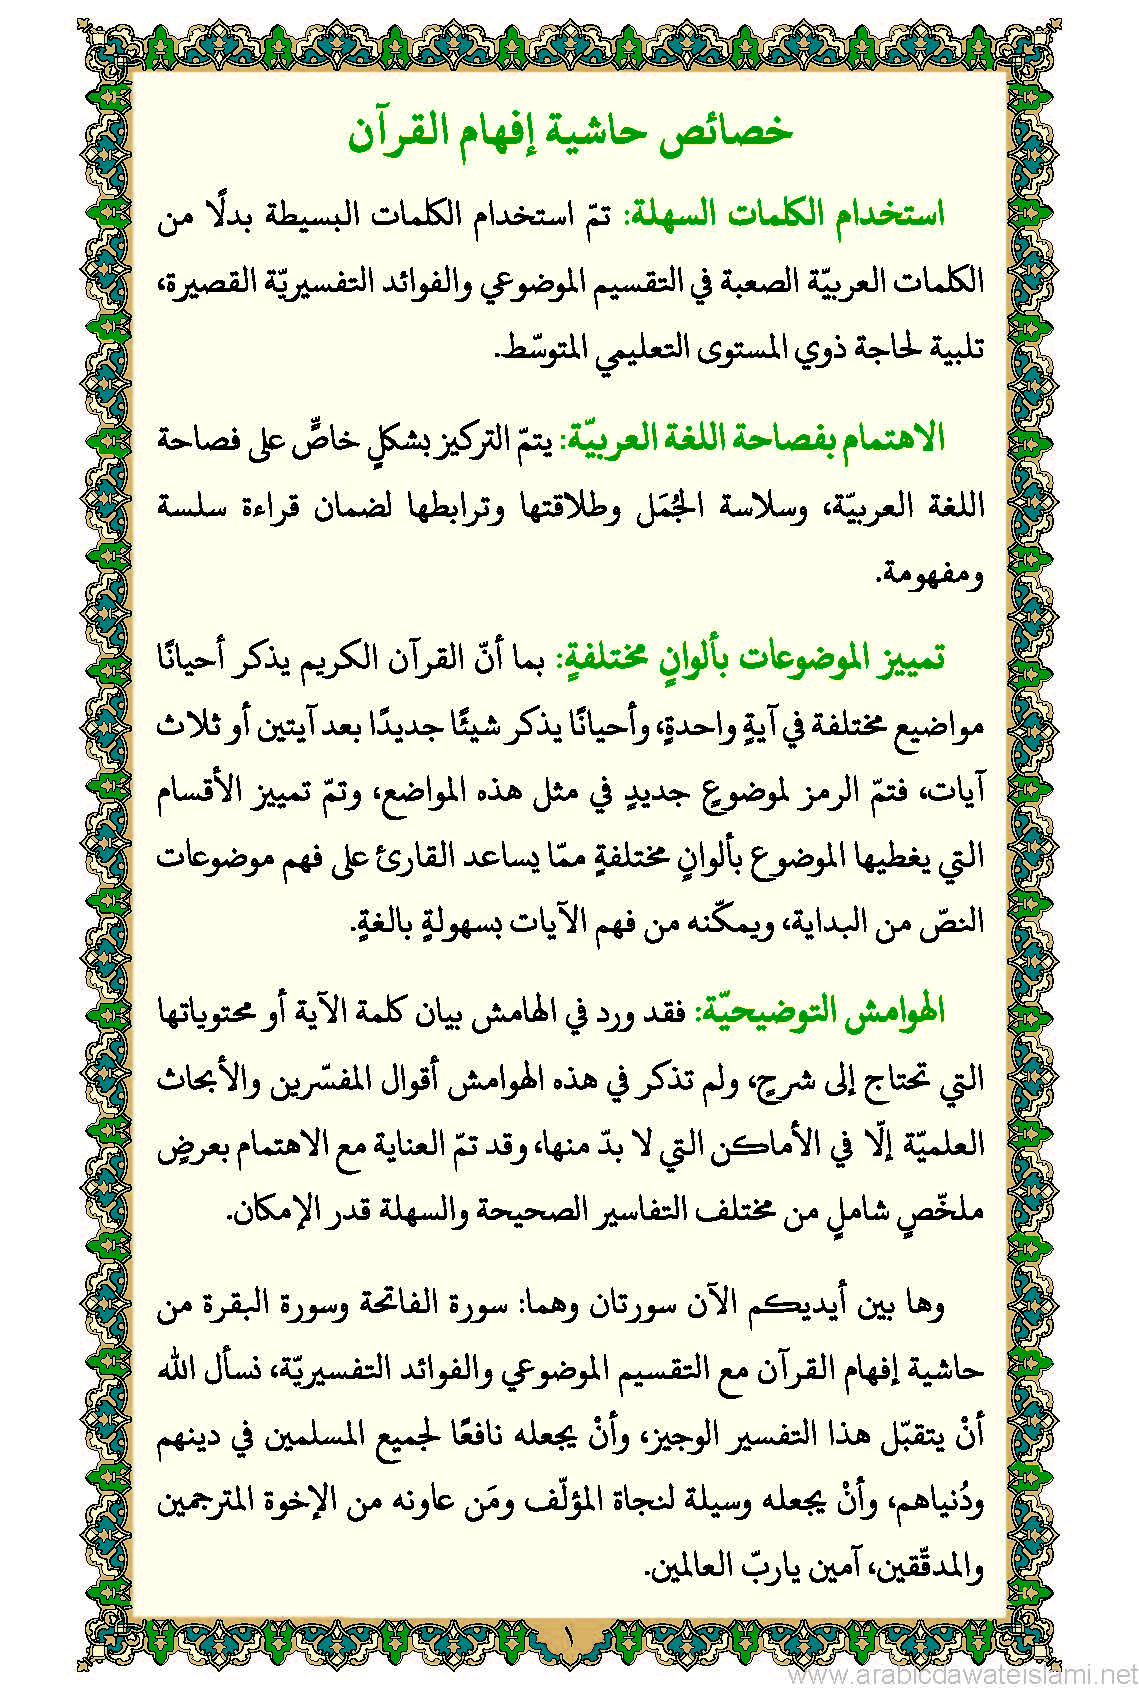 خصائص حاشية إفهام القرآن
استخدام الكلمات السهلة: تمّ استخدام الكلمات البسيطة بدلًا من
الكلمات العربيّة الصعبة في التقسيم الموضوعي والفوائد التفسيريّة القصيرة،
تلبية لحاجة ذوي المستوى التعليمي المتوسّط.
الاهتمام بفصاحة اللغة العربيّة: يتمّ التركيز بشكلٍ خاصٍّ على فصاحة
اللغة العربيّة، وسلاسة الجُمَل وطلاقتها وترابطها لضمان قراءة سلسة
ومفهومة.
تمييز الموضوعات بألوانٍ مختلفةٍ: بما أنّ القرآن الكريم يذكر أحيانًا
مواضيع مختلفة في آيةٍ واحدةٍ، وأحيانًا يذكر شيئًا جديدًا بعد آيتين أو ثلاث
آيات، فتمّ الرمز لموضوعٍ جديدٍ في مثل هذه المواضع، وتمّ تمييز الأقسام
التي يغطيها الموضوع بألوانٍ مختلفةٍ ممّا يساعد القارئ على فهم موضوعات
النصّ من البداية، ويمكّنه من فهم الآيات بسهولةٍ بالغةٍ.
الهوامش التوضيحيّة: فقد ورد في الهامش بيان كلمة الآية أو محتوياتها
التي تحتاج إلى شرحٍ، ولم تذكر في هذه الهوامش أقوال المفسّرين والأبحاث
العلميّة إلّا في الأماكن التي لا بدّ منها، وقد تمّ العناية مع الاهتمام بعرضٍ
ملخّصٍ شاملٍ من مختلف التفاسير الصحيحة والسهلة قدر الإمكان.
وها بين أيديكم الآن سورتان وهما: سورة الفاتحة وسورة البقرة من
حاشية إفهام القرآن مع التقسيم الموضوعي والفوائد التفسيريّة، نسأل الله
أنْ يتقبّل هذا التفسير الوجيز، وأنْ يجعله نافعًا لجميع المسلمين في دينهم
ودُنياهم، وأنْ يجعله وسيلة لنجاة المؤلّف ومَن عاونه من الإخوة المترجمين
والمدقّقين، آمين ياربّ العالمين.
١
www.arabicdawateislami.net